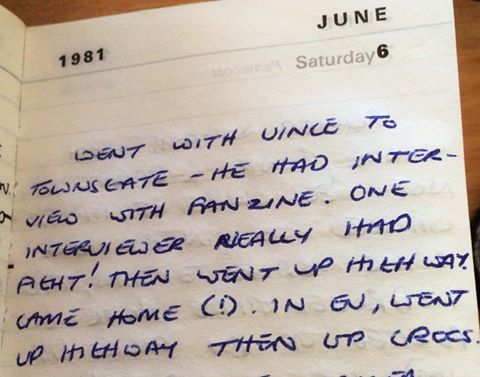 JUNE
1981
Saturday 6
WENT WITH VINCE TO
TOWNGATE - HE HAD INTER-
VIEW WITH FANZINE. ONE
INTERVIEWER REALLY HAD
FIGHT! THEN WENT UP HIGHWAY.
CAME HOME (!). IN EV, WENT
UP HIGHWAY THEN UP CROCS.